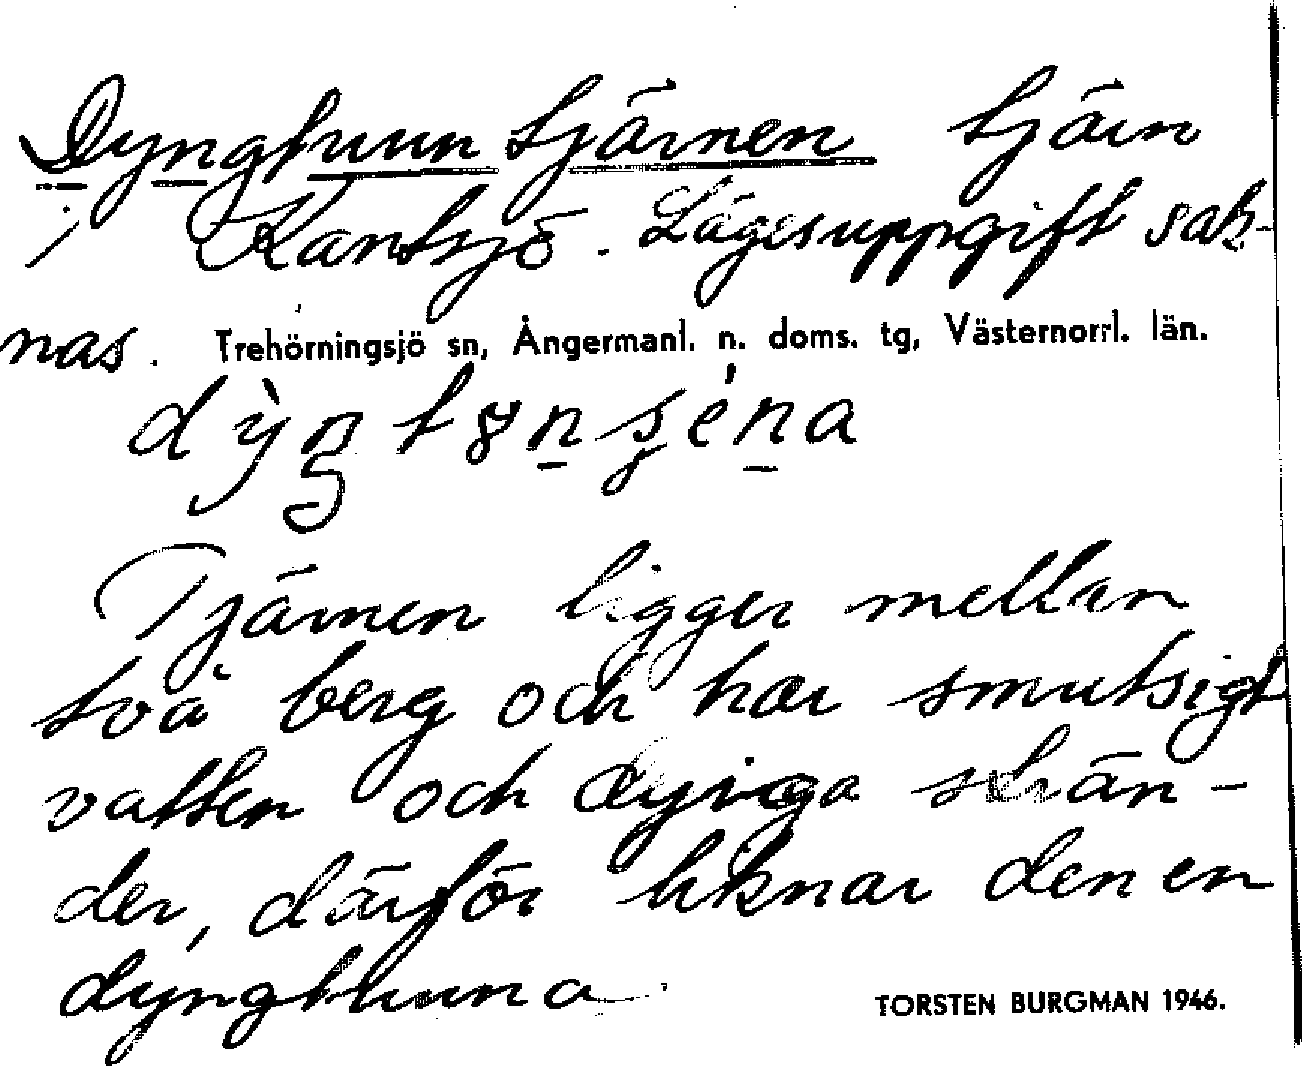 Dyngtunntjärnen tjärn
i Kantsjö. Lägesuppgift sak-
nas. Trehörningsjö sn, Ångermanl. n. doms. tg, Västernorrl. län.
Tjärnen ligger mellan
två berg och har smutsigt
vatten och dyiga strän-
der, därför liknar den en
dyngtunna.
TORSTEN BURGMAN 1946.